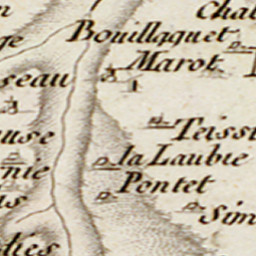 Chal
Bouillaquet
Marot
seau
Teiss
use
la Laubie
nie
Pontet
us
Sim
dies